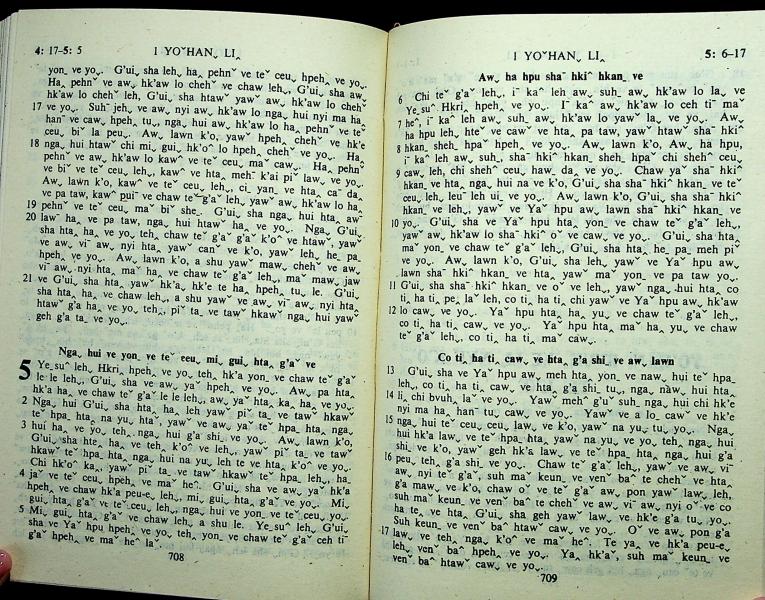 4: 17–5: 5 I YOˇHAN˯ LI˰
yon_ ve yo˯. G'ui˯ sha leh˯ ha˰ pehnˇ ve teˇ ceu˯ hpeh˰ ve yo˯.
Ha˰ pehnˇ ve aw˯ hk'aw lo chehˇ ve chaw leh˯ G'ui˯ sha aw˯
hk'aw lo chehˇ leh, G'ui˯ sha htawˇ yawˇ aw˯ hk'aw lo chehˇ
17 ve yo˯. Suhˉ jeh˯ ve aw˯ nyi aw˯ hk'aw lo nga˯ hui nyi ma ha˰
hanˉ ve caw˯ hpeh˰ tu˯, nga˯ hui aw˯ hk'aw lo ha˰ pehnˇ ve teˇ
ceu˯ biˇ la peu˯. Aw˯ lawn k'o, yawˇ hpeh˰ chehˇ ve hk'e
18 nga˯ hui htawˇ chi mi˯ gui˯ hk'oˆ lo hpeh˰ chehˇ ve yo˯. Ha˰
pehnˇ ve aw˯ hk'aw lo kawˆ ve teˇ ceu˯ maˇ caw˯. Ha˰ pehnˇ
ve biˇ ve teˇ ceu˯ leh˯, kawˆ ve hta˰ mehˉ k'ai piˇ law˯ ve yo˯.
Aw˯ lawn k'o˯ kawˆ ve teˇ ceu˯ leh˯, ci_ yan_ ve hta˰ caˉ da˰
ve pa taw˯ kaw˰ puiˉ ve chaw teˇ g'aˇ leh˯ yawˇ aw˯ hk'aw lo ha˰
19 pehnˇ ve teˇ ceu˯ maˇ biˇ she_. G'ui˯ sha nga˯ hui hta˰ awˉ
20 lawˉ ha˰ ve pa taw˯ nga˯ hui htawˇ ha˰ ve yo˯. Nga˯ G'ui˯
sha hta˰ ha˰ ve yo˯ teh˰ chaw teˇ g'aˇ g'aˇ k'oˆ ve htawˇ, yawˇ
ve aw˯ viˉ aw˯ nyi hta˰ yawˇ canˇ ve k'o˯ yawˇ leh˯ he_ pa_
hpeh˰ ve yo˯. Aw˯ lawn k'o˯ a shu yawˇ maw˯ chehˇ ve aw˯
viˉ aw˯ nyi hta˰ maˇ ha˰ ve chaw teˇ g'aˇ leh˯, maˇ maw˯ jaw
21 ve G'ui˯ sha hta˰ yawˇ hk'a˯ hk'e te ha˰ hpeh˰ tu_ le. G'ui˯
sha hta˰ ha˰ ve chaw leh˯, a shu yawˇ ve aw˯ viˉ aw˯ nyi hta˰
htawˇ g'a ha˰ ve yo˯ teh˰ piˇ ta˯ ve tawˇ hkawˇ nga˯ hui yawˇ
geh g'a ta˯ ve yo˯.
Nga˯ hui ve yon_ ve teˇ ceu˯ mi˯ gui˯ hta˰ g'aˇ ve
5 Ye_suˆ leh˯ Hkri˰ hpeh˰ ve yo˯ teh˰ hk'a yon_ ve chaw teˇ g'aˇ
le le leh˯, G'ui˯ sha ve aw˯ yaˇ hpeh˰ ve yo˯. Aw˯ pa hta˰
hk'a ha˰ ve chaw teˇ g'aˇ le le leh˯ aw˯ yaˇ hta˰ ka˰ ha˰ ve yo˯.
2 Nga˯ hui G'ui˯ sha hta˰ ha˰ leh yawˇ piˇ ta˯ ve tawˇ hkawˇ
teˇ hpa˰ hta˰ na yu˯ htaˇ, yawˇ ve aw˯ yaˇ teˇ hpa˰ hta˰ nga˯
3 hui ha˰ ve yo˯ teh˰ nga˯ hui g'a shi˰ ve yo˯. Aw˯ lawn k'o˯
G'ui˯ sha hta˰ ha˰ ve teh˰ k'oˆ ve leh˯, yawˇ piˇ ta˯ ve tawˇ
hkawˇ teˇ hpa˰ hta˰ nga˯ hui na yu˯ leh te ve hta˰ k'oˆ ve yo˯.
Chi hk'oˆ ka˰ yawˇ piˇ ta˯ ve tawˇ hkawˇ teˇ hpa˰ leh˯, ha˰
4 jaˇ ve teˇ ceu˯ hpeh˰ ve maˇ heˆ. G'ui˯ sha ve aw˯ yaˇ hk'a
hpeh˰ ve chaw hk'a peu-e˯ leh˯, mi˯ gui˯ hta˰ g'aˇ ve yo˯. Mi˯
gui˯ hta˰ g'aˇ ve teˇ ceu˯ leh˯, nga˯ hui ve yon_ ve teˇ ceu˯ yo˯.
5 Mi˯ gui˯ hta˰ g'aˇ ve chaw leh˯ a shu le. Ye_suˆ leh˯ G'ui˯
sha ve Yaˇ hpu hpeh˰ ve yo˯ teh˰ yon_ ve chaw teˇ g'aˇ ceh tiˉ
g'aˇ hpeh˰ ve maˇ heˆ laˇ.
708
I YOˇHAN˯ LI˰ 5: 6–17
Aw˯ ha hpu shaˉ hkiˆ hkan_ ve
6 Chi teˇ g'aˇ leh˯, iˇ kaˆ leh aw˯ suh_ aw˯ hk'aw lo la˯ ve
Ye_suˆ Hkri˰ hpeh˰ ve yo˯. Iˇ kaˆ aw˯ hk'aw lo ceh tiˉ maˇ
7 heˆ, iˇ kaˆ leh aw˯ suh_ aw˯ hk'aw lo yawˇ la˯ ve yo˯. Aw˯
ha hpu leh˯ hteˇ ve cawˇ ve hta˰ pa taw˯ yawˇ htawˇ shaˉ hkiˆ
8 hkan_ shehˍ hpaˇ hpeh˰ ve yo˯. Aw˯ lawn k'o, Aw˯ ha hpu,
iˇ kaˆ leh aw˯ suh_, shaˉ hkiˆ hkan_ sheh_ hpaˇ chi shehˆ ceu˯
9 caw˯ leh˯, chi shehˆ ceu˯ haw_ da˯ ve yo˯. Chaw yaˇ shaˉ hkiˆ
hkan_ ve hta˰ nga˯ hui na ve k'o, G'ui˯ sha shaˉ hkiˆ hkan_ ve teˇ
ceu˯ leh˯ leuˉ leh ui_ ve yo˯. Aw˯ lawn k'o, G'ui˯ sha shaˉ hkiˆ
hkan_ ve leh˯, yawˇ ve Yaˇ hpu aw˯ lawn shaˉ hkiˆ hkan_ ve
10 yo˯. G'ui˯ sha ve Yaˇ hpu hta˰ yon_ ve chaw teˇ g'aˇ leh˯,
yawˇ aw˯ hk'aw lo shaˉ hkiˆ oˇ ve caw˯ ve yo˯. G'ui˯ sha hta˰
maˇ yon_ ve chaw teˇ g'aˇ leh˯, G'ui˯ sha hta˰ he_ pa_ meh piˇ
ve yo˯. Aw˯ lawn k'o, G'ui˯ sha leh˯ yawˇ ve Yaˇ hpu aw˯
lawn shaˉ hkiˆ hkan_ ve hta˰ yawˇ maˇ yon_ ve pa taw yo˯.
11 G'ui˯ sha shaˉ hkiˆ hkan_ ve oˇ ve leh˯, yawˇ nga˯ hui hta˰ co
ti˰ ha ti˰ pe˯ laˇ leh˯ co ti˰ ha ti˰ chi yawˇ ve Yaˇ hpu aw˯ hk'aw
12 lo caw˯ ve yo˯. Yaˇ hpu hta˰ ha˰ yu˯ ve chaw teˇ g'aˇ leh˯,
co ti˰ ha ti˰ caw˯ ve yo˯. Yaˇ hpu hta˰ maˇ ha˰ yu˯ ve chaw
teˇ g'aˇ leh˯, co ti˰ ha ti˰ maˇ caw˯.
Co ti˰ ha ti˰ caw˯ ve hta˰ g'a shi˰ ve aw˯ lawn
13 G'ui˯ sha ve Yaˇ hpu aw˯ meh hta˰ yon_ ve naw˯ hui teˇ hpa_
leh˯, co ti˰ ha ti˰ caw˯ ve hta˰ g'a shi˰ tu˯, nga˯ nawˇ hui hta˰
14 li˰ chi bvuh˰ laˇ ve yo˯. Yawˇ mehˇ g'uˇ suh_ nga˯ hui chi hk'e
nyi ma ha˰ hanˉ tu˯ caw˯ ve yo˯. Yawˇ ve a lo_ caw˯ ve hk'e
15 nga˯ hui teˇ ceu˯ ceu˯ law˯ ve k'o˯ yawˇ na yu˯ tu˯ yo˯. Nga˯
hui hk'a law˯ ve teˇ hpa˰ hta˰ yawˇ na yu˯ ve yo˯ teh˰ nga˯ hui
shi˰ ve k'o˯ yawˇ geh hk'a law˯ ve teˇ hpa˰ hta˰ nga˯ hui g'a
16 peu˯ teh˰ g'a shi˰ ve yo˯. Chaw teˇ g'aˇ leh˯, yawˇ ve aw˯ viˉ
aw˯ nyi teˇ g'aˇ, suhˉ maˇ keun_ ve ven˯ baˆ te chehˇ ve hta˰
g'a maw˯ ve k'o˯ chaw oˇ ve teˇ g'aˇ aw˯ pon yawˇ law˯ leh˯
suhˉ maˇ keun_ ve ven˯ baˆ te chehˇ ve aw˯ viˉ aw˯ nyi oˇ ve co
ha te˰ ve hta˰ G'ui˯ sha geh yawˇ lawˇ ve hk'e g'a tu˯ yo˯.
Suh keun_ ve ven˯ baˆ htawˇ caw˯ ve yo˯. Oˇ ve aw˯ pon g'a
17 law˯ ve teh˰ nga˯ k'oˆ ve maˇ he. Te ya˰ ve hk'a peu-e˯
leh˯ ven˯ baˆ hpeh˰ ve yo˯. Ya˰ hk'aˇ, suh maˇ keun_ ve
ven˯ baˆ htawˇ caw˯ ve yo˯.
709